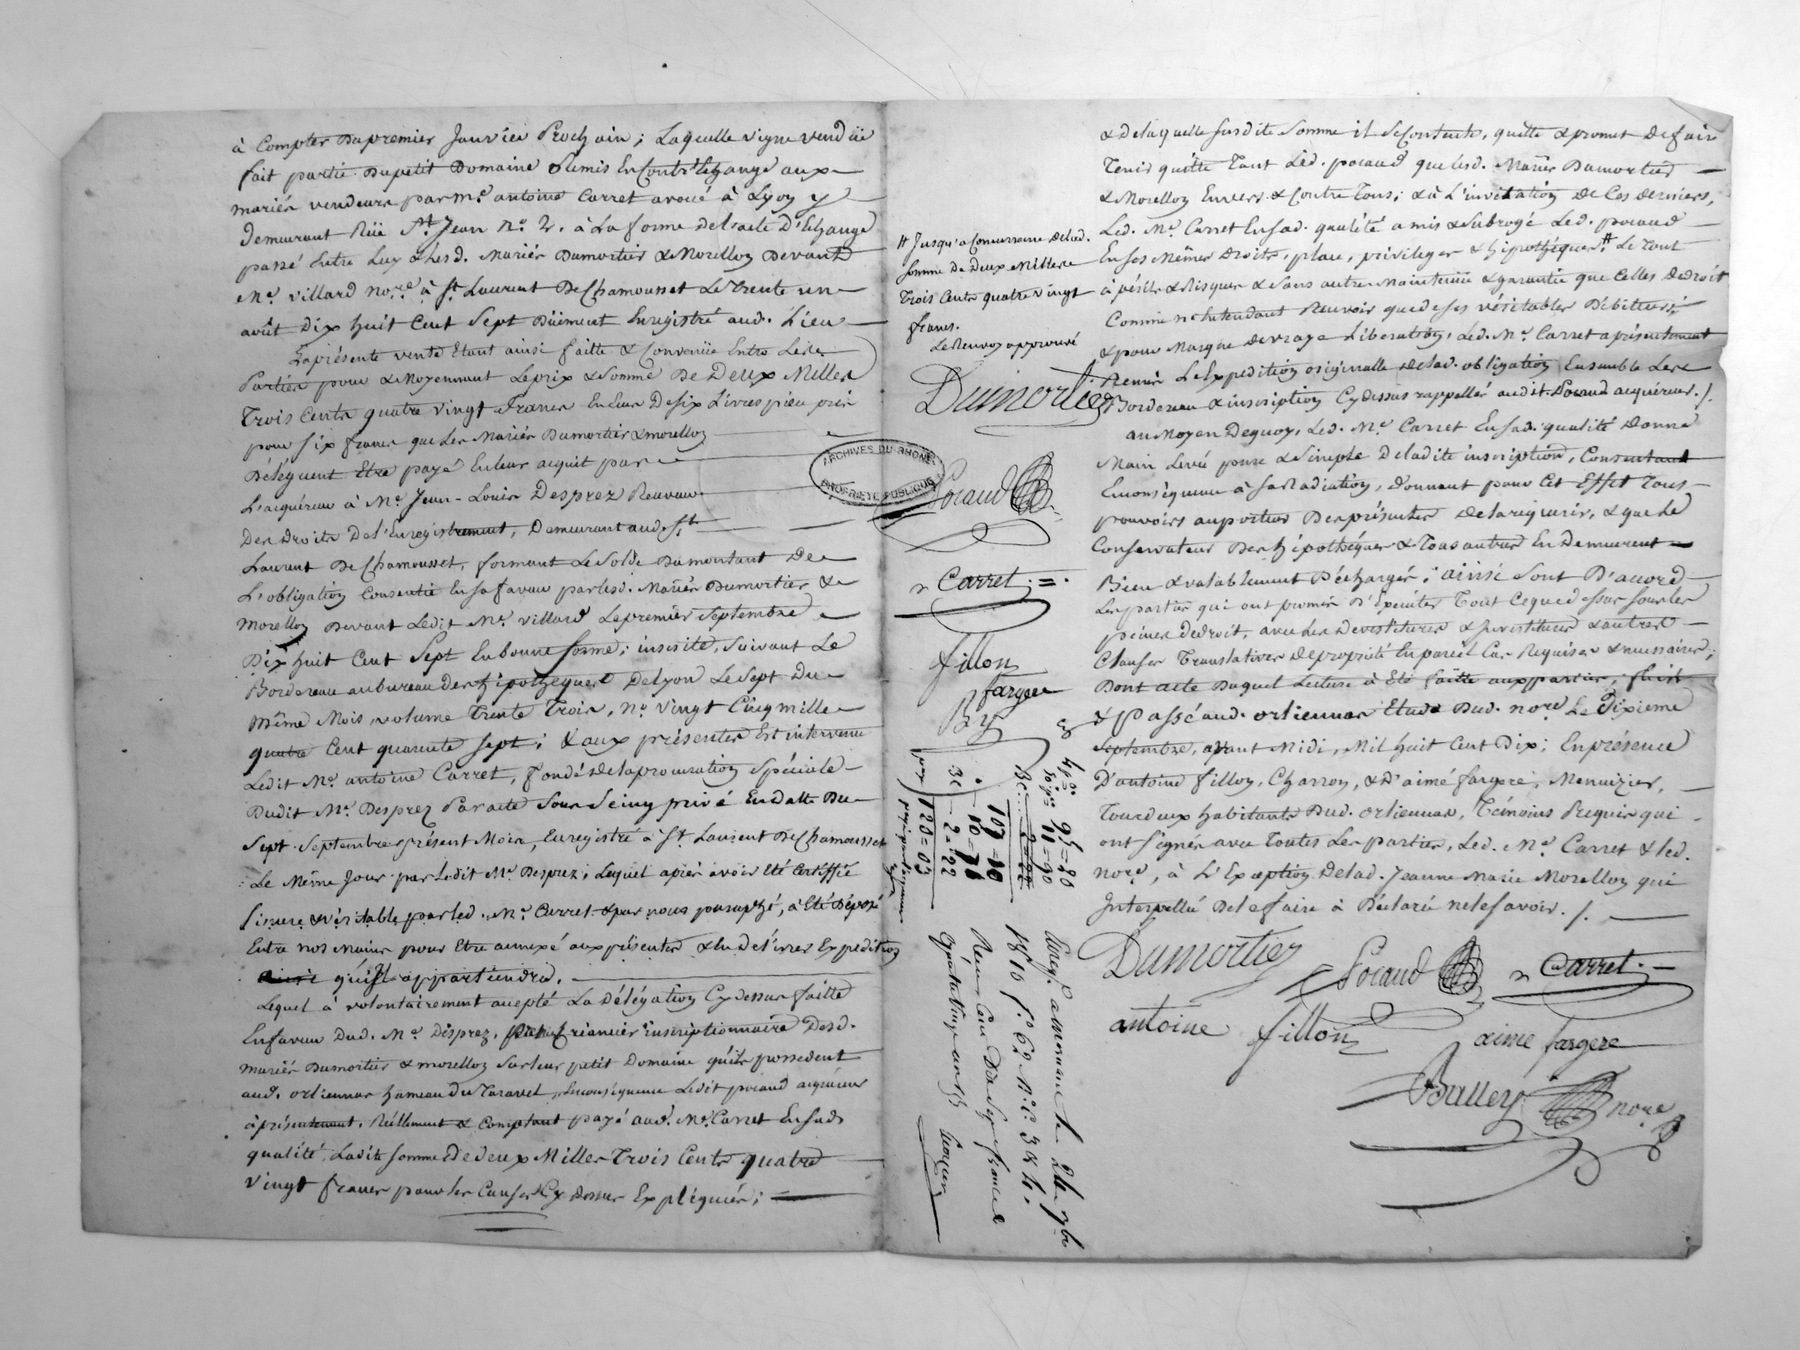 à Compter Dupremier Janvier Prochain; Laquelle vigne vendüe
fait partie Dupetit Domaine Remis En Contr'Echange aux
mariés vendeurs par me. antoine Carret avoué à Lyon y
demeurant Rüe St. Jean no. 2. à La forme del'acte D'Echange
passé Entre Luy & Lesd. Mariés Dumortier & Morellon Devant
Me. Villard nore. à St. Laurent De Chamousset Le Trente un
août Dix huit Cent Sept Düement Enregistré aud. Lieu
Laprésente vente Etant ainsi faitte & Convenüe Entre Lesd.
Parties pour & Moyennant Leprix & Somme De Deux Milles
Trois Cents quatre vingt francs En Ecus De six Livres pieu prix
pour Six francs que Les Mariés Dumortier & morellon
Délèguent Etre payé Enleur acquit par
L'acquéreur à Me. Jean-Louis Desprez Receveur
Des Droits De L'Enregistrement, Demeurant aud. St.
Laurent De Chamousset, formant Le Solde Dumontant De
L'obligation Consentie En sa faveur par lesd. Mariés Dumortier &
Morellon Devant Ledit Me. Villard Lepremier Septembre
Dix huit Cent Sept En bonne forme; inscrite, Suivant Le
Bordereau au bureau Des hipothèques De Lyon Le Sept Du
même Mois, volume Trente Trois, no. vingt Cinq mille
quatre Cent quarante Sept; & aux présentes Est intervenu
Ledit Me. antoine Carret, fondé de la procuration Spéciale
Dudit Me. Desprez Par acte Sous Seing privé En datte Du
Sept Septembre présent Mois, Enregistré à St. Laurent De Chamousset
Le Même Jour par Ledit Me. Desprez; Lequel après avoir Eté Certiffié
sincere & véritable par led. Me. Carret & par nous paraphé, à Eté Déposé
Entre nos mains pour Etre annexé aux présentes & En délivrer Expedition
à qui il appartiendra.
Lequel à volontairement accepté La Délégation Cy dessus faitte
En faveur Dud. Me. Desprez, Créancier inscriptionnaire Desd.
mariés Dumortier & morellon Sur leur petit Domaine qu'ils possedent
aud. orliennas hameau du Taravel, En conséquence Ledit pocaud acquéreur
à présentement, Réellement & Comptant payé aud. Me. Carret En sad.
qualité, Ladite Somme De deux Milles Trois Cents quatre
vingt francs pour les Causes Cy dessus Expliquées;
# Jusqu'a Concurrance delad.
somme De Deux Milles
Trois Cents quatre vingt
francs.
Le Renvoy approuvé
Dumortier
ARCHIVES DU RHONE
PROPRIÉTÉ PUBLIQUE
Pocaud
Carret
fillon
fargere
By
4 pr. % 95=20
11=90
107=10
10=71
2=22
120=03
1810 f. 62 R. C. 3 & 4.
& delaquelle Susdite Somme il Se Contente, quitte & promet De fair
Tenir quitte Tant Led. pocaud que lesd. Mariés Dumortier
& Morellon Envers & Contre Tous; & à L'invitation De Ces derniers,
Led. Me. Carret En sad. qualité a mis & Subrogé Led. pocaud
En ses Mêmes Droits, place, priviléges & hipothèques # Le Tout
à périls & Risques & Sans autre Maintenüe & garantie que Celles De droit
Comme n'Entendant Recevoir que de ses véritables Débitteurs;
& pour Marque de vraye Liberation, Led. Me. Carret a présentement
Remis L'Expedition originalle delad. obligation Ensemble Les
Bordereau & inscription Cy dessus rappellés audit Pocaud acquéreur./.
au Moyen Dequoy, Led. Me. Carret En sad. qualité Donne
Main Levée pure & Simple De ladite inscription, Consentant
En conséquence à Sa Radiation, donnant pour Cet Effet Tous
pouvoirs au porteur Des présentes de la requerir, & que Le
Conservateur Des hipothéques & Tous autres En Demeurent
Bien & valablement Décharges; ainsi Sont D'accord
Les parties qui ont promis D'Executer Tout Ceque dessus Sous les
peines De droit, avec Les Devestitures & Investitures & autres
Clauses Translatives De proprieté En pareil Cas Requises & necessaires;
Dont acte Duquel Lecture à Eté faitte aux parties, fait
& Passé aud. orliennas Etude Dud. nore Le Dixieme
Septembre, avant Midi, Mil huit Cent Dix; En présence
D'antoine fillon, Charron, & D'aimé fargere, Menuizier,
Tous deux habitants Dud. orliennas, Témoins Requis qui
ont Signés avec Toutes Les parties, Led. Me. Carret & led.
nore, à L'Exception Delad. Jeanne Marie Morellon qui
Interpellée De le faire à Déclaré ne le savoir./.
Dumortier Pocaud Carret
antoine fillon aimé fargere
Bulley nore